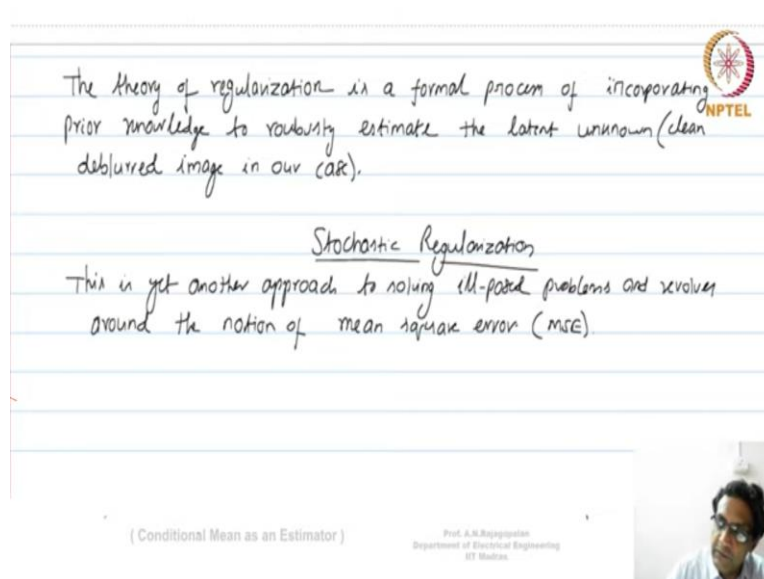 The theory of regularization is a formal process of incorporating
NPTEL
prior knowledge to roubusty estimate the latent unknown (clean
deblurred image in our case).
Stochastic Regularization
This is yet another approach to solving ill-posed problems and revolves
around the notion of mean square error (MSE).
( Conditional Mean as an Estimator )
Prof. A.N.Rajagopalan
Department of Electrical Engineering
IIT Madras